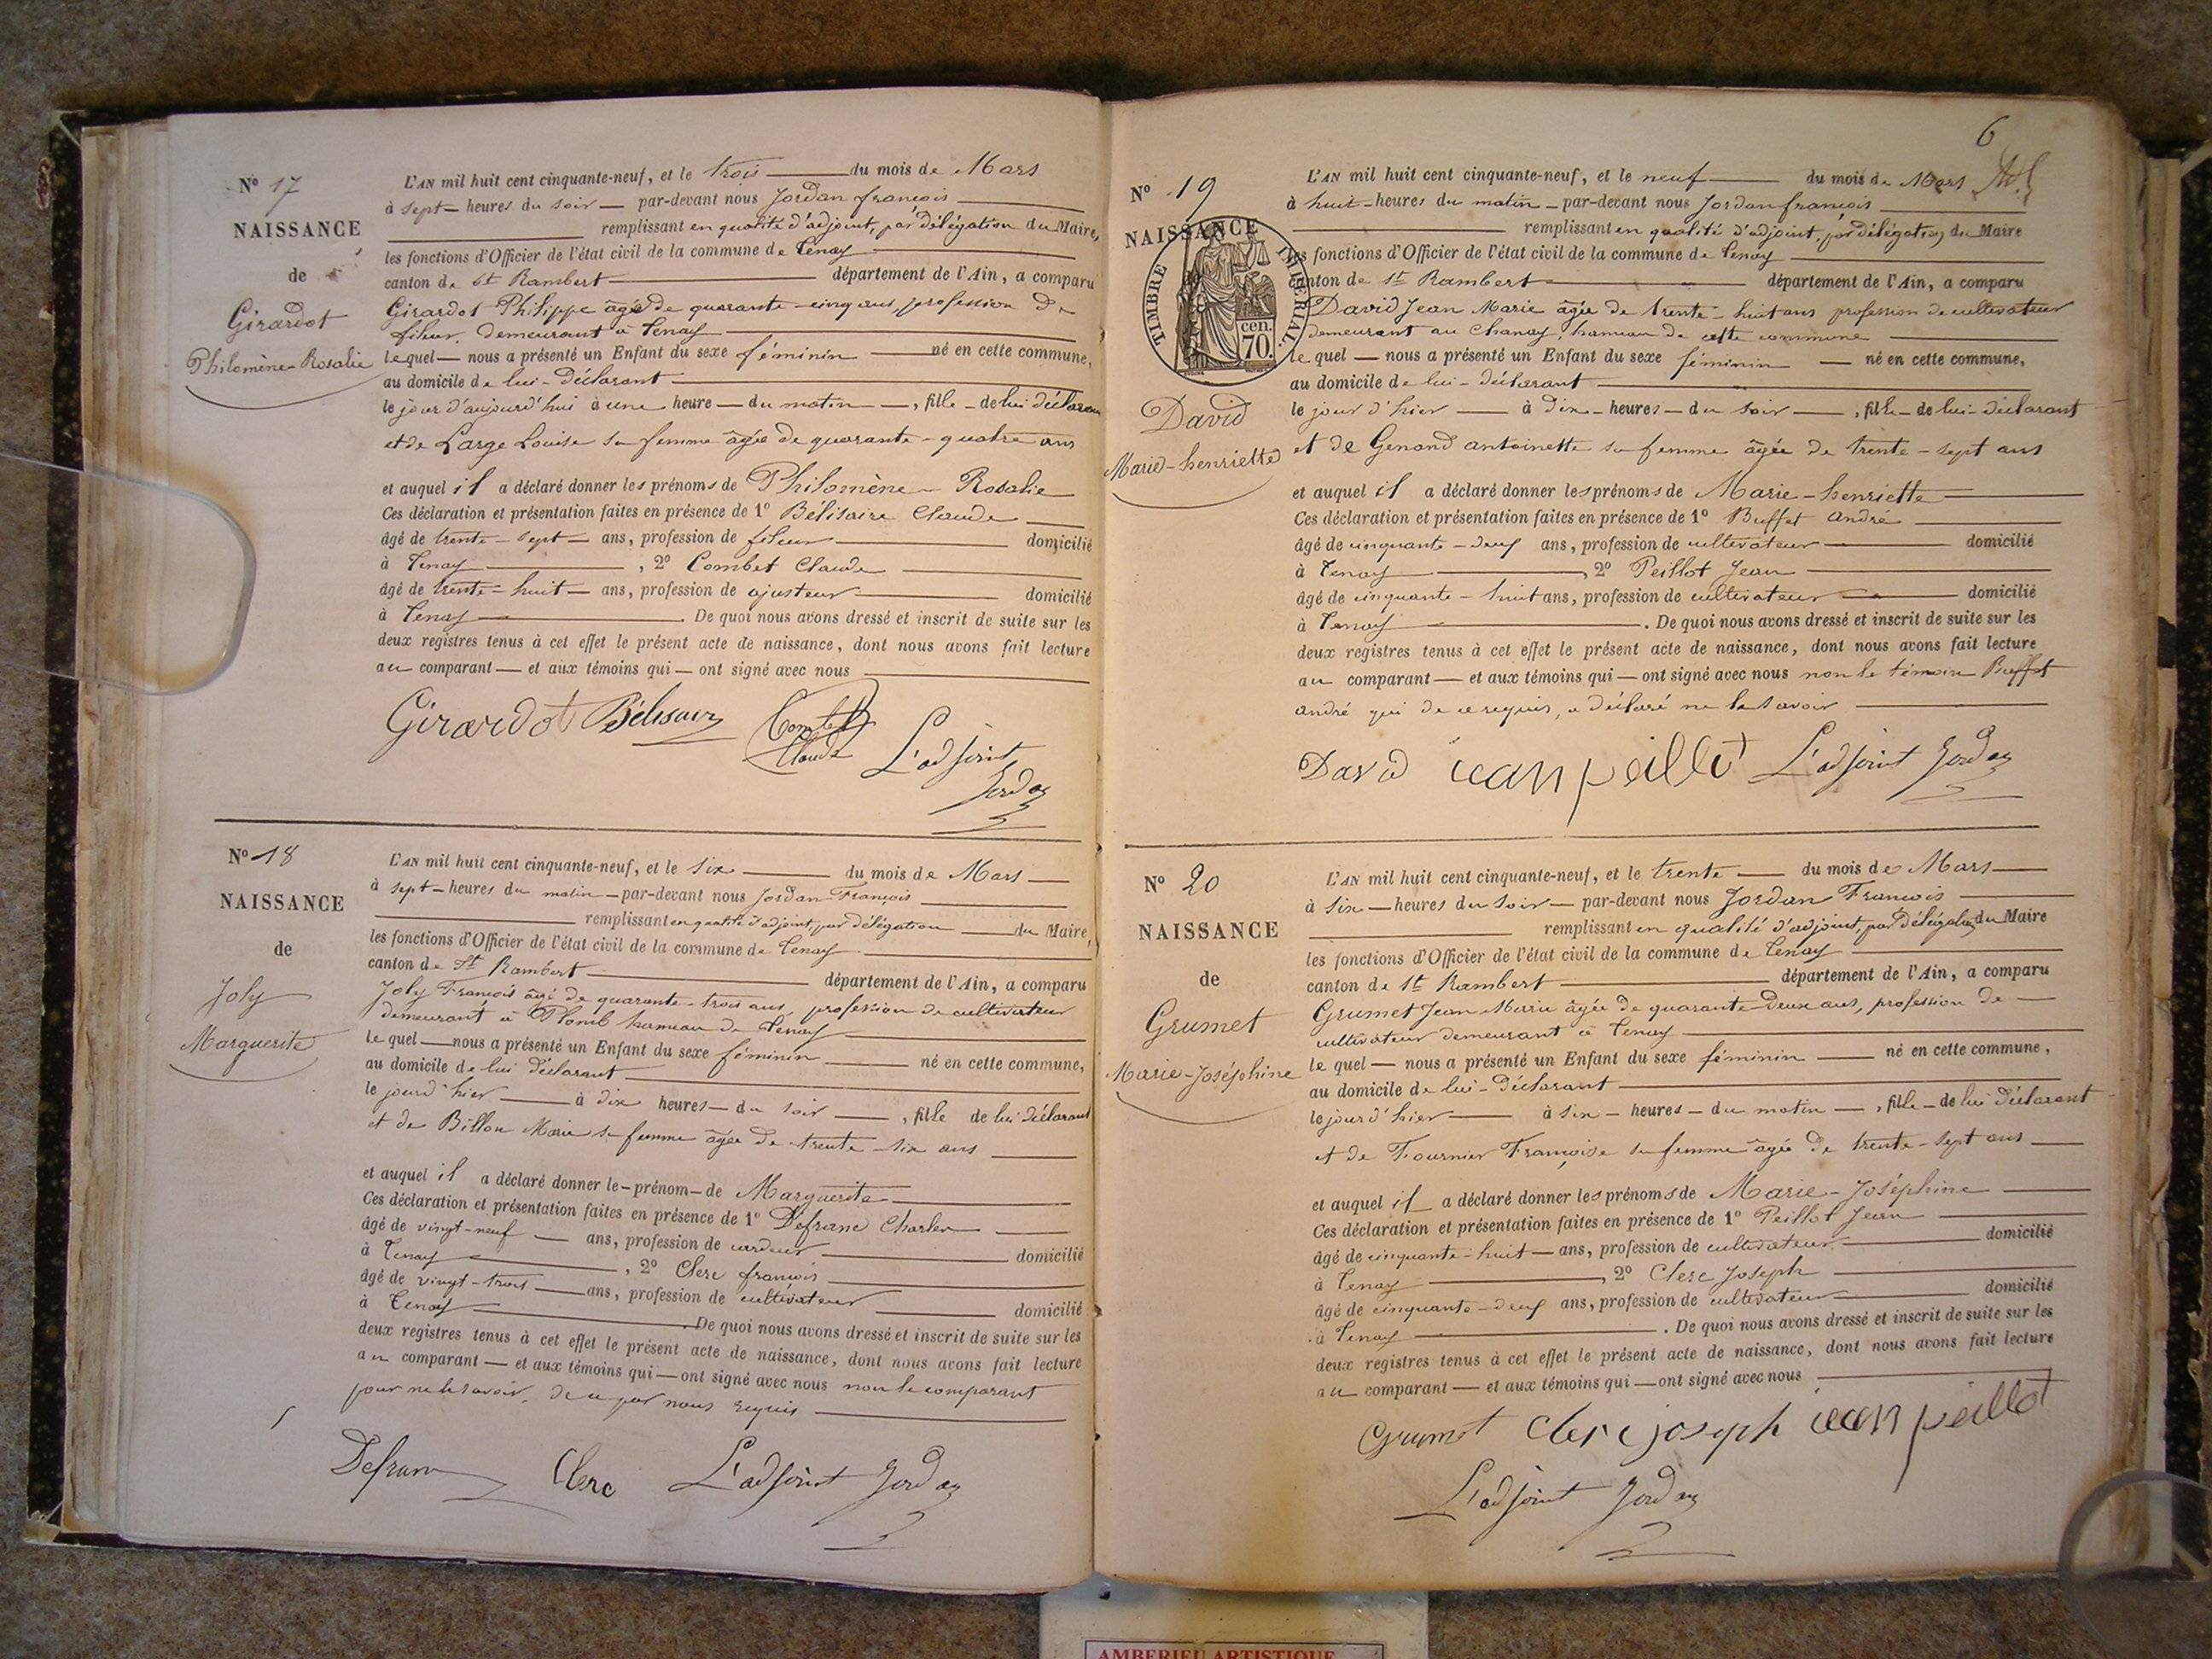 Nº 17
NAISSANCE
de
Girardot
Philomène-Rosalie
L'AN mil huit cent cinquante-neuf, et le trois du mois de Mars
à sept heures du soir par-devant nous Jordan françois
remplissant en qualité d'adjoint, par délégation du Maire,
les fonctions d'Officier de l'état civil de la commune de Tenay
canton de St Rambert département de l'Ain, a comparu
Girardot Philippe âgé de quarante-cinq ans, profession de
fileur, demeurant à Tenay
Lequel nous a présenté un Enfant du sexe féminin né en cette commune,
au domicile de lui-Déclarant
le jour d'aujourd'hui à une heure du matin, fille de lui déclarant
et de Large Louise sa femme âgée de quarante-quatre ans
et auquel il a déclaré donner les prénoms de Philomène-Rosalie
Ces déclaration et présentation faites en présence de 1º Bélisaire Claude
âgé de trente-sept ans, profession de fileur domicilié
à Tenay, 2º Combet Claude
âgé de trente-huit ans, profession de ajusteur domicilié
à Tenay. De quoi nous avons dressé et inscrit de suite sur les
deux registres tenus à cet effet le présent acte de naissance, dont nous avons fait lecture
au comparant et aux témoins qui ont signé avec nous
Girardot Bélisair Combet Claude L'adjoint Jordan
Nº 18
NAISSANCE
de
Joly
Marguerite
L'AN mil huit cent cinquante-neuf, et le six du mois de Mars
à sept heures du matin par-devant nous Jordan François
remplissant en qualité d'adjoint, par délégation du Maire,
les fonctions d'Officier de l'état civil de la commune de Tenay
canton de St Rambert département de l'Ain, a comparu
Joly François âgé de quarante-trois ans, profession de cultivateur
demeurant à Plomb hameau de Tenay
Lequel nous a présenté un Enfant du sexe féminin né en cette commune,
au domicile de lui Déclarant
le jour d'hier à dix heures du soir, fille de lui déclarant
et de Billon Marie sa femme âgée de trente-six ans
et auquel il a déclaré donner le prénom de Marguerite
Ces déclaration et présentation faites en présence de 1º Defranc Charles
âgé de vingt-neuf ans, profession de cardeur domicilié
à Tenay, 2º Clerc françois
âgé de vingt-trois ans, profession de cultivateur domicilié
à Tenay. De quoi nous avons dressé et inscrit de suite sur les
deux registres tenus à cet effet le présent acte de naissance, dont nous avons fait lecture
au comparant et aux témoins qui ont signé avec nous non le comparant
pour ne le savoir, de ce par nous requis
Defranc Clerc L'adjoint Jordan
6
Nº 19
NAISSANCE
TIMBRE IMPÉRIAL
cen. 70.
David
Marie-henriette
L'AN mil huit cent cinquante-neuf, et le neuf du mois de Mars
à huit heures du matin par-devant nous Jordan françois
remplissant en qualité d'adjoint, par délégation du Maire
les fonctions d'Officier de l'état civil de la commune de Tenay
canton de St Rambert département de l'Ain, a comparu
David Jean Marie âgé de trente-huit ans profession de cultivateur
demeurant au Chanay, hameau de cette commune
Lequel nous a présenté un Enfant du sexe féminin né en cette commune,
au domicile de lui-déclarant
le jour d'hier à dix heures du soir, fille de lui-déclarant
et de Genand antoinette sa femme âgée de trente-sept ans
et auquel il a déclaré donner les prénoms de Marie-henriette
Ces déclaration et présentation faites en présence de 1º Buffet André
âgé de cinquante-deux ans, profession de cultivateur domicilié
à Tenay, 2º Peillot Jean
âgé de cinquante-huit ans, profession de cultivateur domicilié
à Tenay. De quoi nous avons dressé et inscrit de suite sur les
deux registres tenus à cet effet le présent acte de naissance, dont nous avons fait lecture
au comparant et aux témoins qui ont signé avec nous non le témoin Buffet
andré qui de ce requis, a déclaré ne le savoir
David jean peillot L'adjoint Jordan
Nº 20
NAISSANCE
de
Grumet
Marie-Joséphine
L'AN mil huit cent cinquante-neuf, et le trente du mois de Mars
à six heures du soir par-devant nous Jordan François
remplissant en qualité d'adjoint, par Délégation du Maire
les fonctions d'Officier de l'état civil de la commune de Tenay
canton de St Rambert département de l'Ain, a comparu
Grumet Jean Marie âgé de quarante Deux ans, profession de
cultivateur demeurant à Tenay
lequel nous a présenté un Enfant du sexe féminin né en cette commune,
au domicile de lui-Déclarant
le jour d'hier à six heures du matin, fille de lui Déclarant
et de Fournier Françoise sa femme âgée de trente-sept ans
et auquel il a déclaré donner les prénoms de Marie-Joséphine
Ces déclaration et présentation faites en présence de 1º Peillot Jean
âgé de cinquante-huit ans, profession de cultivateur domicilié
à Tenay, 2º Clerc Joseph
âgé de cinquante-deux ans, profession de cultivateur domicilié
à Tenay. De quoi nous avons dressé et inscrit de suite sur les
deux registres tenus à cet effet le présent acte de naissance, dont nous avons fait lecture
au comparant et aux témoins qui ont signé avec nous
Grumet Clerc joseph jean peillot
L'adjoint Jordan
AMBERIEU ARTISTIQUE